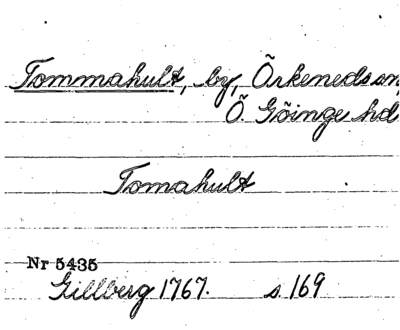 Tommahult, by, Örkeneds sn,
Ö. Göinge hd
Tomahult
Nr 5435
Gillberg 1767. s. 169